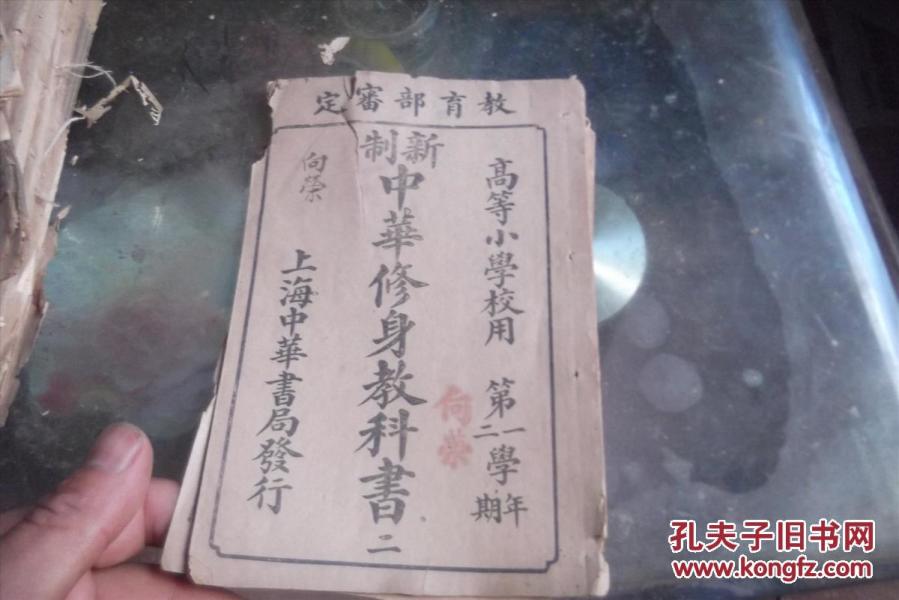 教育部審定
高等小學校用 第一二學年期
新制中華修身教科書 二
向榮
向榮
上海中華書局發行
孔夫子旧书网
www.kongfz.com